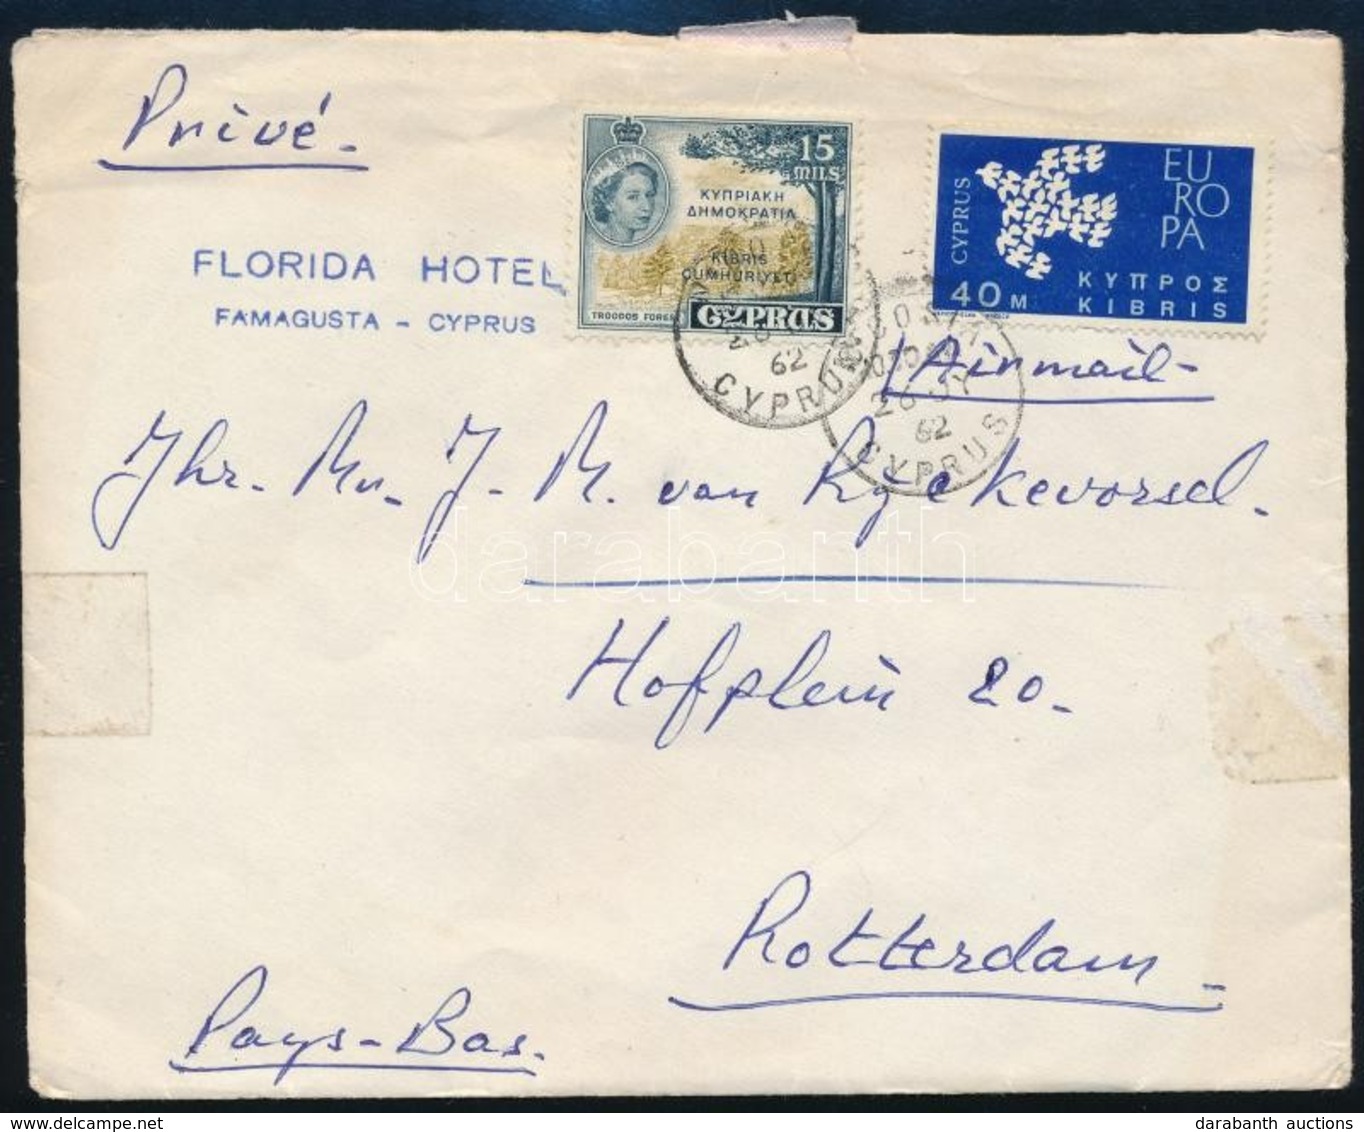 Privé.
FLORIDA HOTEL
FAMAGUSTA - CYPRUS
15
MILS
ΚΥΠΡΙΑΚΗ
ΔΗΜΟΚΡΑΤΙΑ
KIBRIS
CUMHURIYETI
TROODOS FOREST
CYPRUS
CYPRUS
EU
RO
PA
40 M
ΚΥΠΡΟΣ
KIBRIS
62
CYPRUS
62
CYPRUS
Airmail-
Jhr. Mr. J. M. van Ryckevorsel.
darabanth
Hofplein 20.
Rotterdam.
Pays-Bas.
www.delcampe.net
darabanth auctions